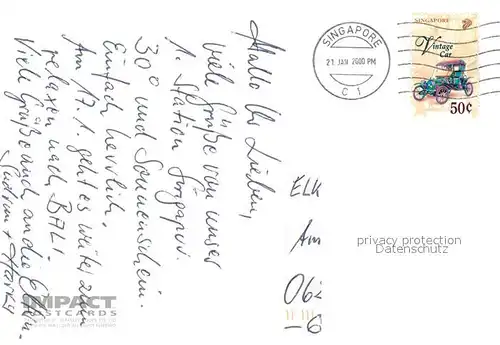 Hallo Ihr Lieben,
viele Grüße von unser
1. Station Singapur.
30° und Sonnenschein.
Einfach herrlich.
Am 17.1. geht es weiter zum
relaxen nach BALI.
Viele Grüße auch an die Eltern.
Gudrun + Harry
SINGAPORE
21 JAN 2000 PM
C 1
SINGAPORE
Vintage
Car
50¢
ELK
Am
privacy protection
Datenschutz
06
-6
IMPACT
POSTCARDS